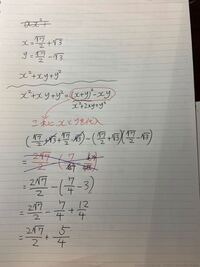 x = √7/2 + √3
y = √7/2 - √3
x² + xy + y²
x² + xy + y² = (x+y)² - xy
x² + 2xy + y²
(√7/2 + √3 + √7/2 - √3) - (√7/2 + √3)(√7/2 - √3)
= 2√7/2 - (7/4 - 3)
= 2√7/2 - 7/4 + 12/4
= 2√7/2 + 5/4